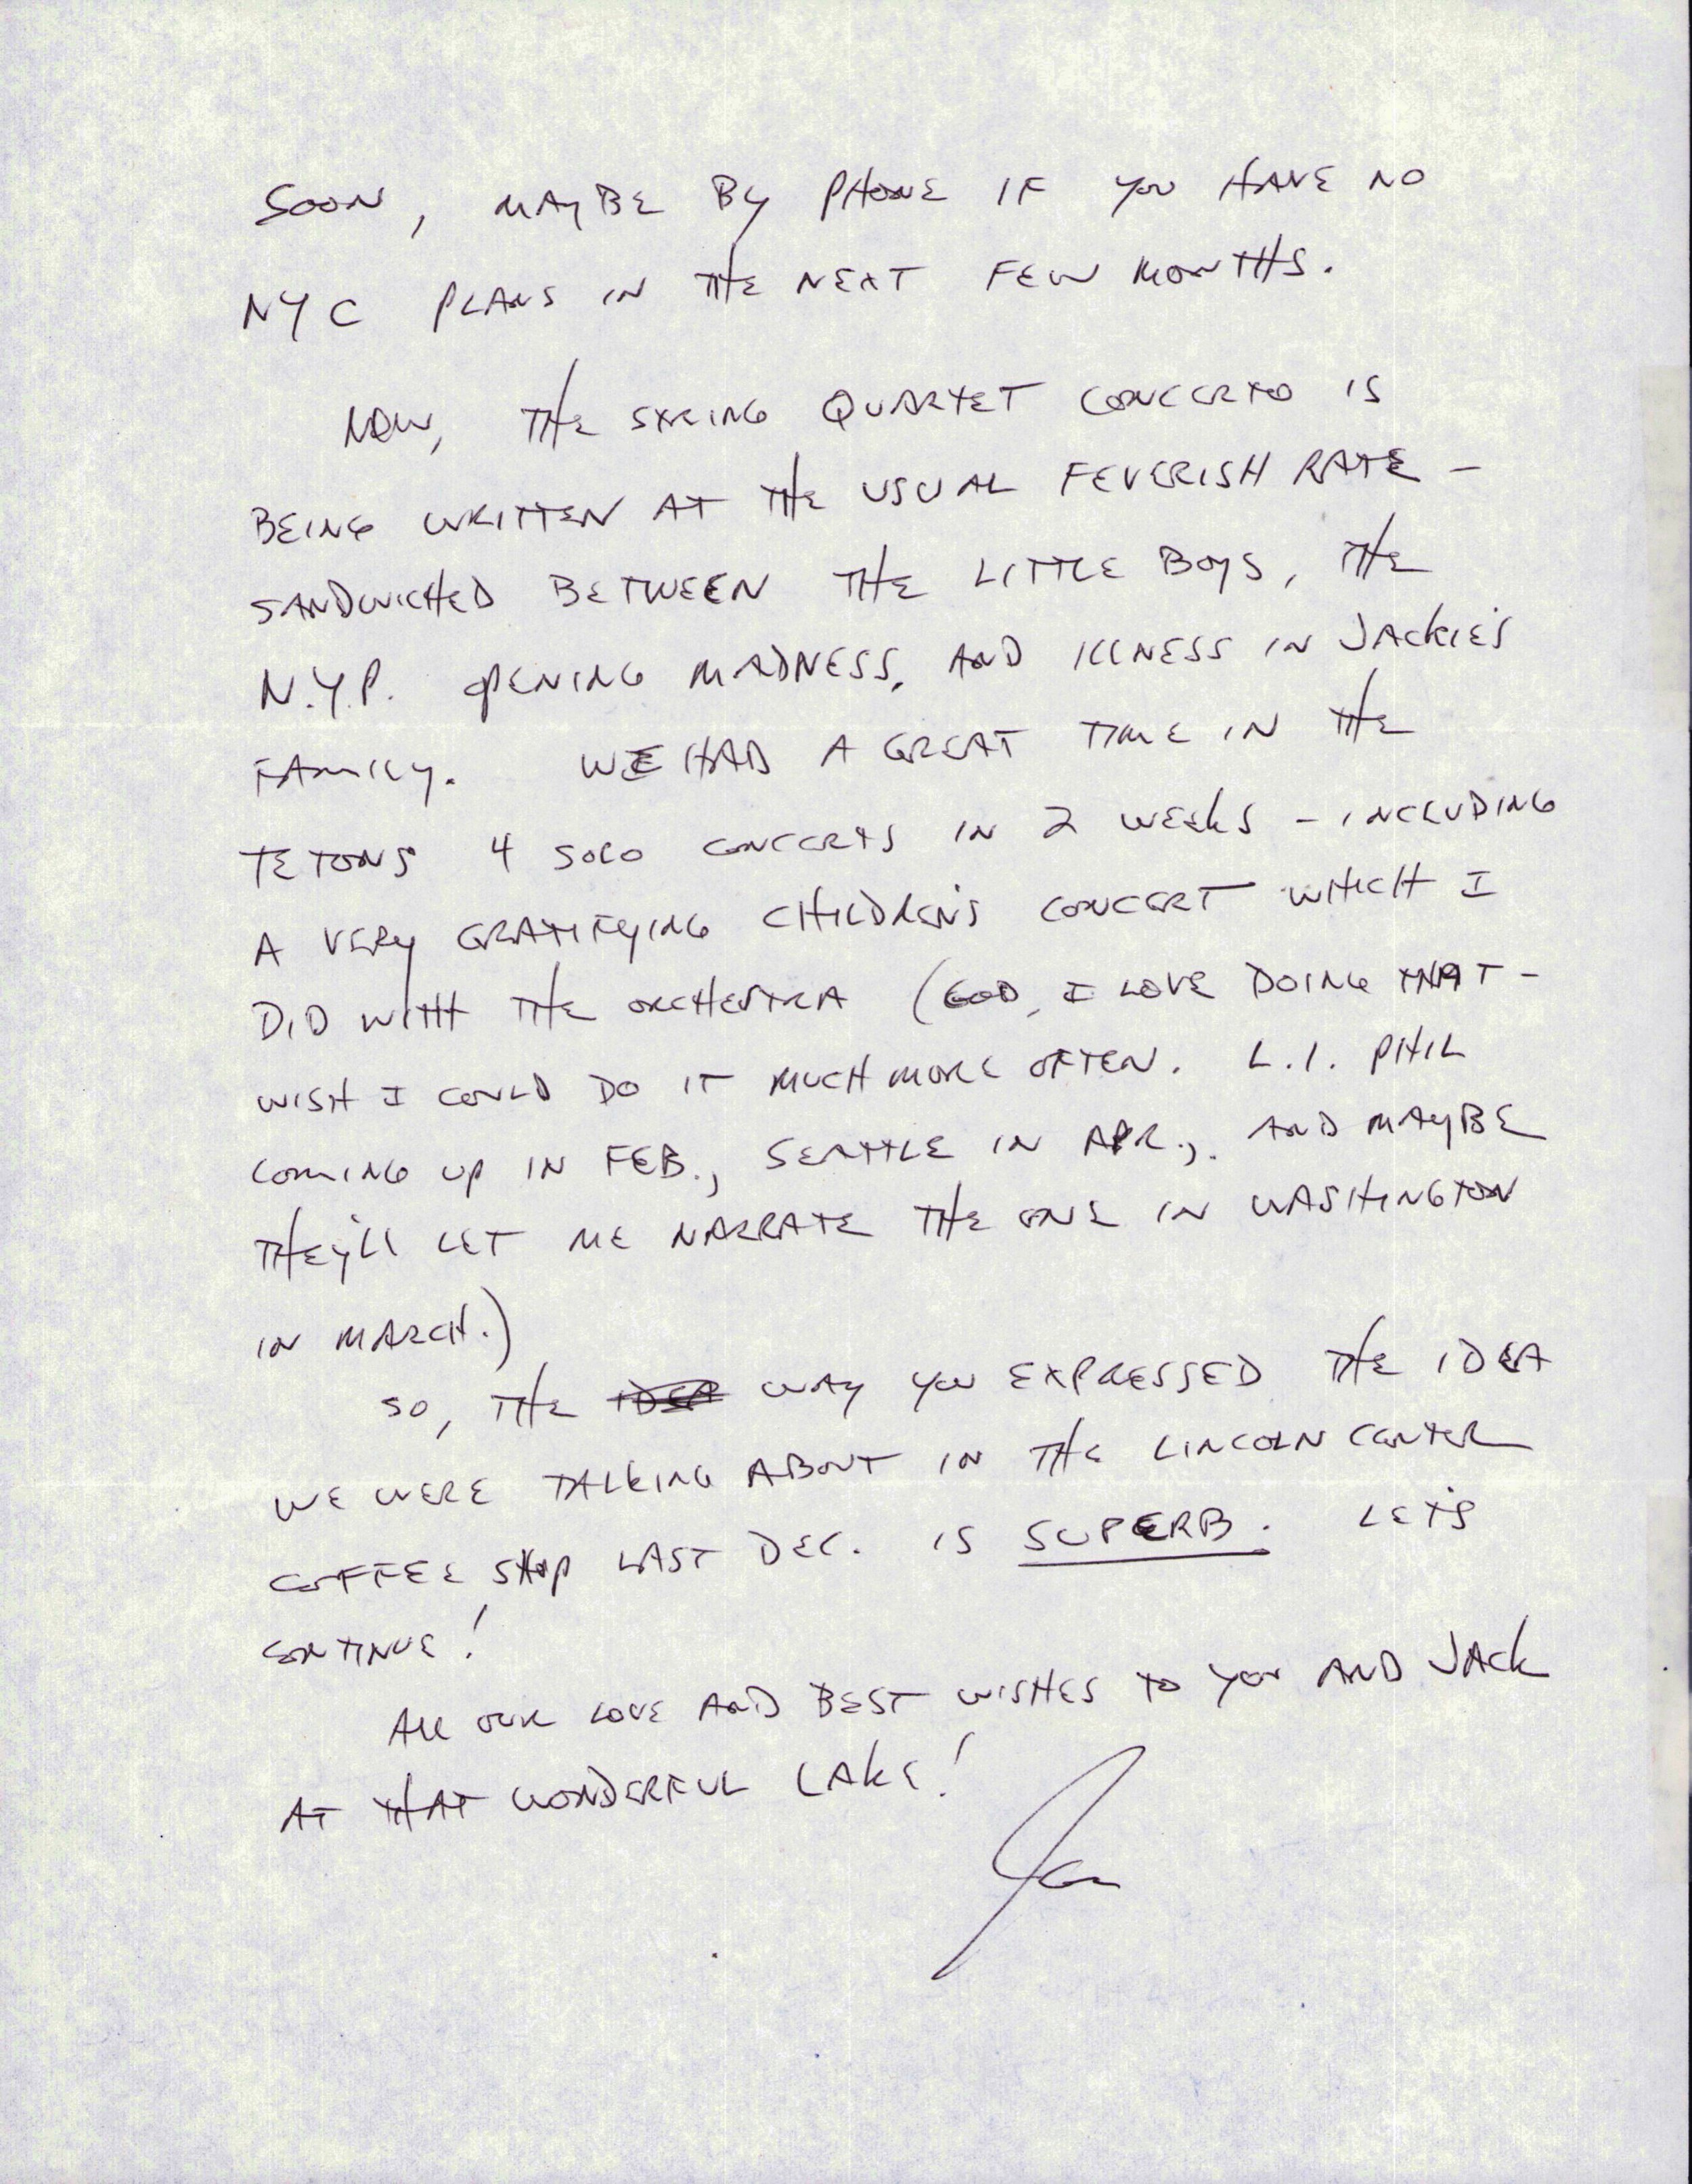 SOON, MAYBE BY PHONE IF YOU HAVE NO
NYC PLANS IN THE NEXT FEW MONTHS.
NOW, THE STRING QUARTET CONCERTO IS
BEING WRITTEN AT THE USUAL FEVERISH RATE –
SANDWICHED BETWEEN THE LITTLE BOYS, THE
N.Y.P. OPENING MADNESS, AND ILLNESS IN JACKIE'S
FAMILY. WE HAD A GREAT TIME IN THE
TETONS 4 SOLO CONCERTS IN 2 WEEKS – INCLUDING
A VERY GRATIFYING CHILDREN'S CONCERT WHICH I
DID WITH THE ORCHESTRA (GOD, I LOVE DOING THAT –
WISH I COULD DO IT MUCH MORE OFTEN. L.I. PHIL
COMING UP IN FEB., SEATTLE IN APR., AND MAYBE
THEY'LL LET ME NARRATE THE ONE IN WASHINGTON
IN MARCH.)
SO, THE IDEA WAY YOU EXPRESSED THE IDEA
WE WERE TALKING ABOUT IN THE LINCOLN CENTER
COFFEE SHOP LAST DEC. IS SUPERB. LET'S
CONTINUE!
ALL OUR LOVE AND BEST WISHES TO YOU AND JACK
AT THAT WONDERFUL LAKE!